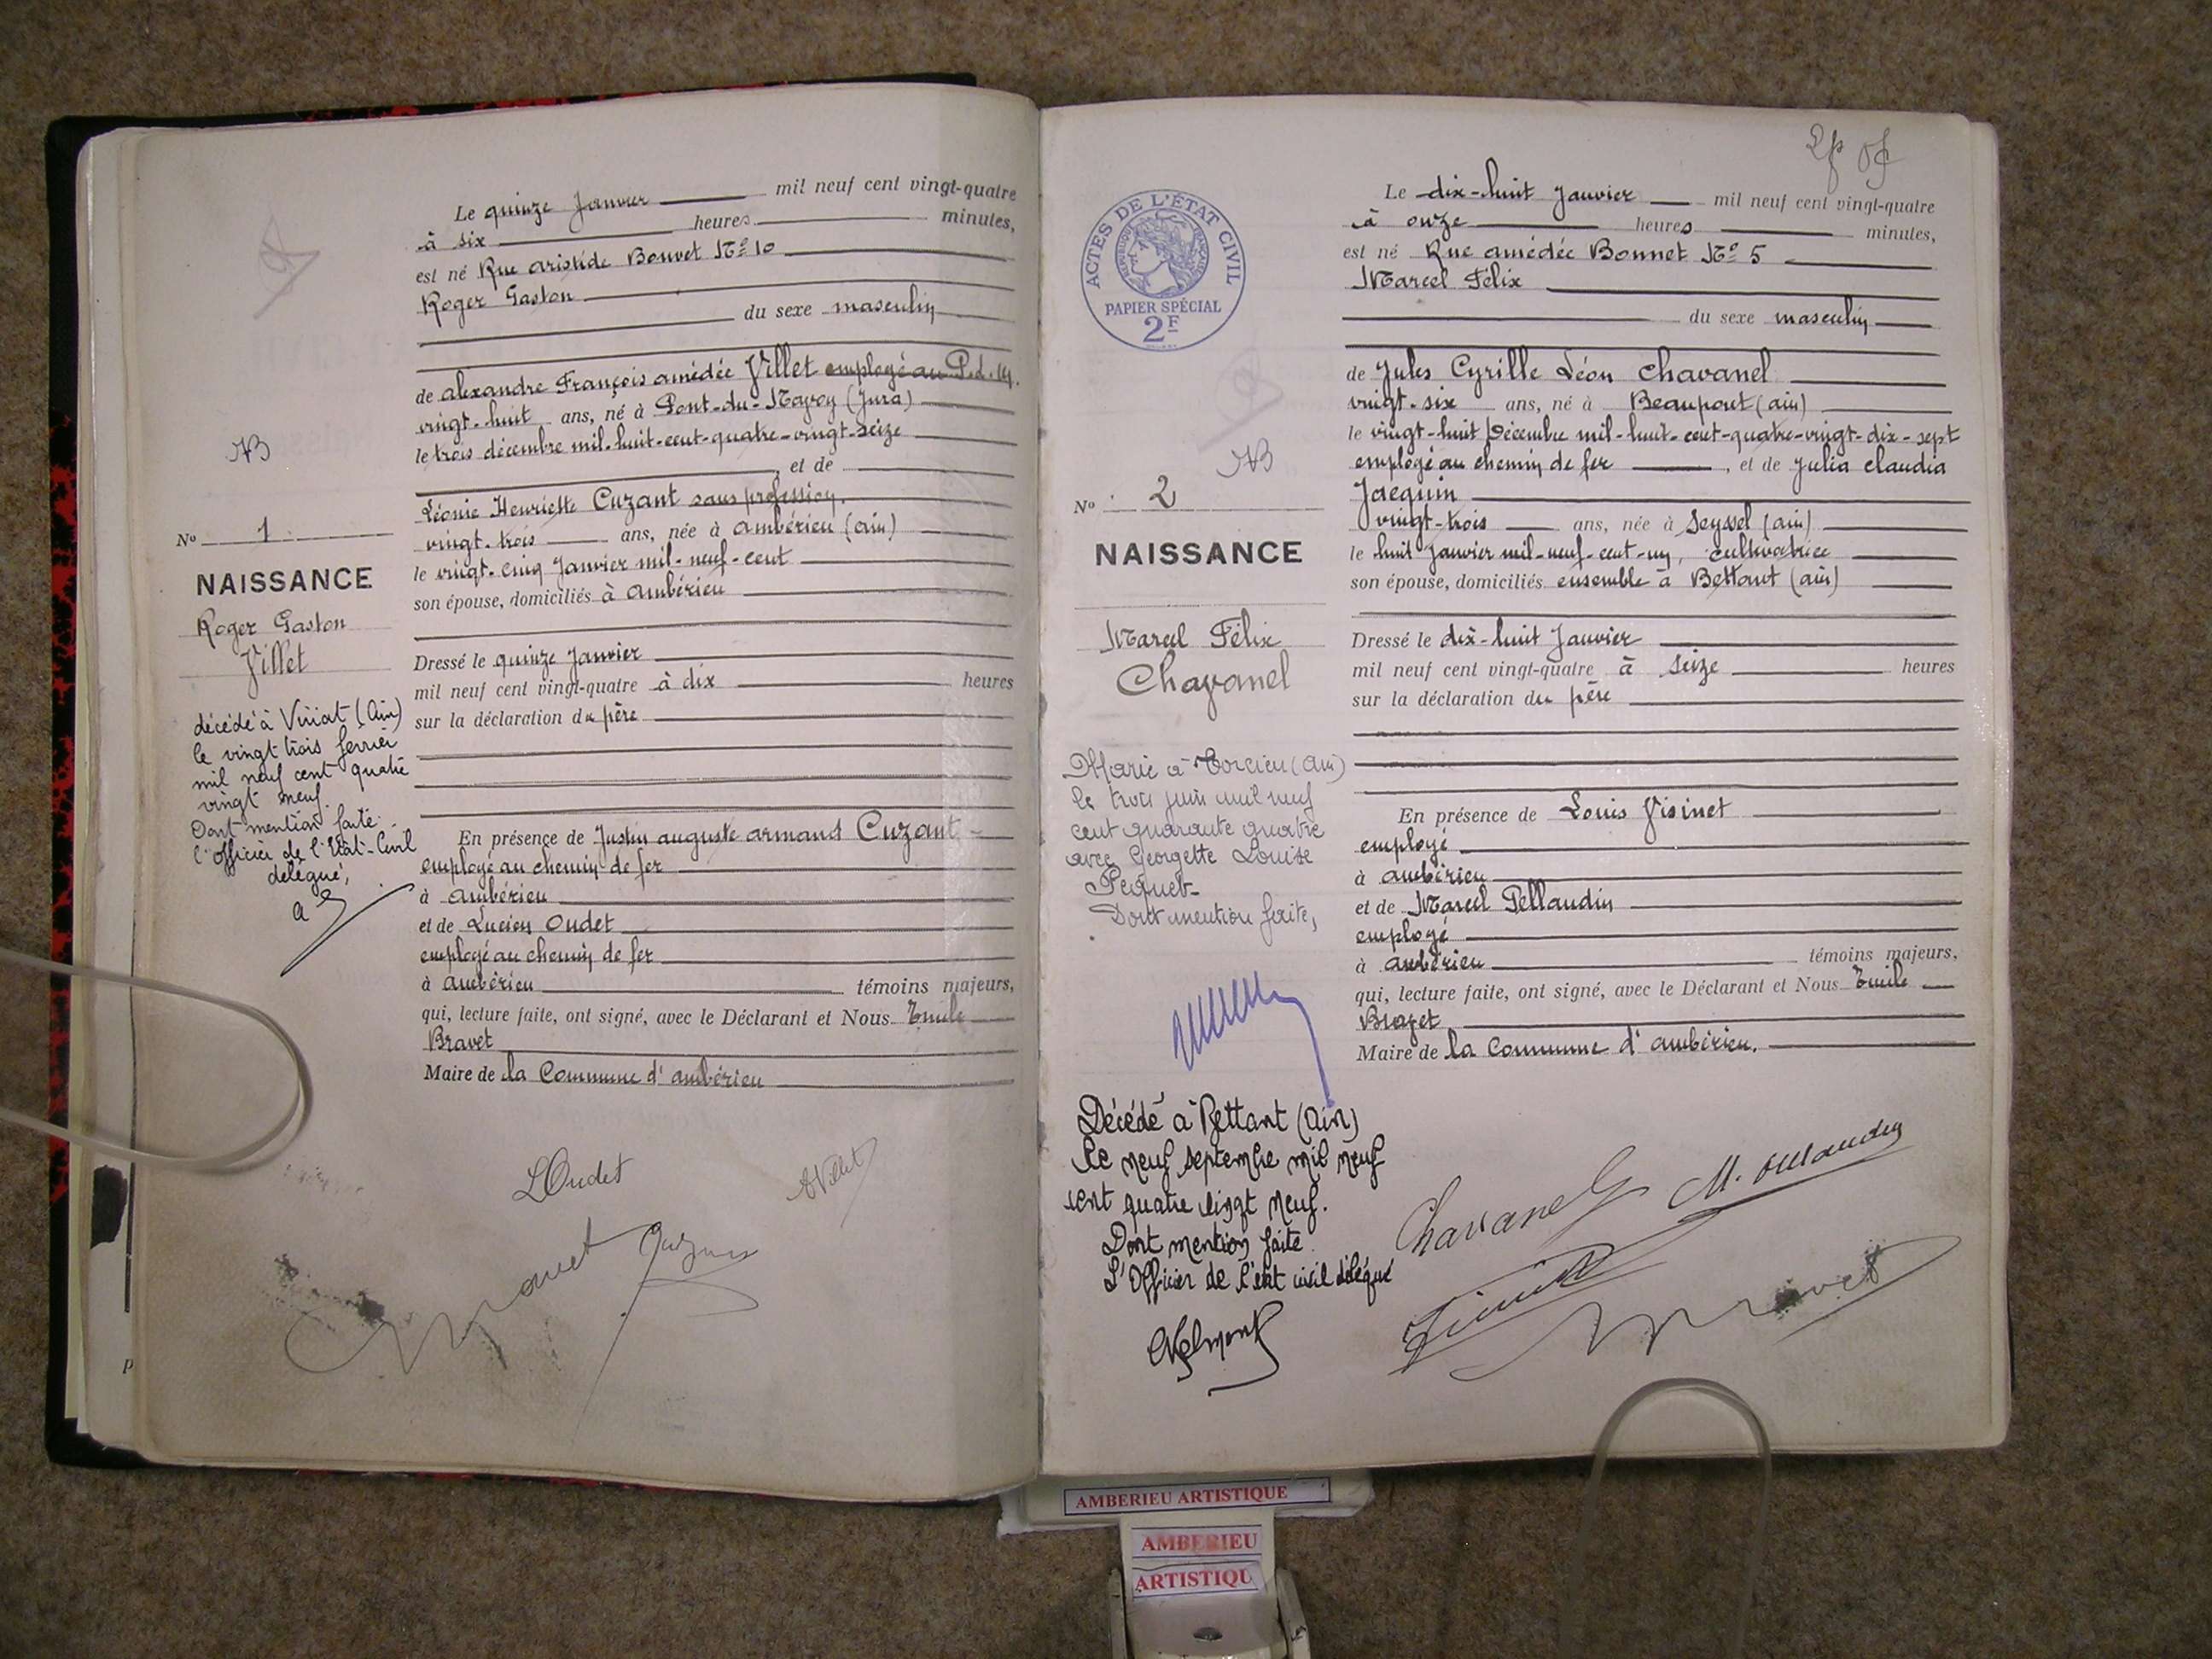 Le quinze Janvier mil neuf cent vingt-quatre
à six heures minutes,
est né Rue aristide Bouvet Nº 10
Roger Gaston
du sexe masculin
de alexandre François amédée Villet employé au P.L.M.
vingt-huit ans, né à Pont-du-Navoy (Jura)
le trois décembre mil-huit-cent-quatre-vingt-seize
, et de
Léonie Henriette Cuzant sans profession.
vingt-trois ans, née à ambérieu (ain)
le vingt-cinq Janvier mil-neuf-cent
son épouse, domiciliés à ambérieu
AB
Nº 1
NAISSANCE
Roger Gaston
Villet
décédé à Viriat (Ain)
le vingt trois ferrier
mil neuf cent quatre
vingt neuf.
Dont mention faite.
l'officier de l'Etat-Civil
délégué,
Dressé le quinze Janvier
mil neuf cent vingt-quatre à dix heures
sur la déclaration du père
En présence de Justin auguste armand Cuzant
employé au chemin de fer
à ambérieu
et de Lucien Oudet
employé au chemin de fer
à ambérieu témoins majeurs,
qui, lecture faite, ont signé, avec le Déclarant et Nous Emile
Bravet
Maire de la Commune d'ambérieu
LOudet
AVillet
Bravet
ACTES DE L'ÉTAT CIVIL
PAPIER SPÉCIAL
2F
Le dix-huit Janvier mil neuf cent vingt-quatre
à onze heures minutes,
est né Rue amédée Bonnet Nº 5
Marcel Félix
du sexe masculin
de Jules Cyrille Léon Chavanel
vingt-six ans, né à Beaupont (ain)
le vingt-huit Décembre mil-huit-cent-quatre-vingt-dix-sept
employé au chemin de fer , et de Julia Claudia
Jacquin
vingt-trois ans, née à Seyssel (ain)
le huit Janvier mil-neuf-cent-un, cultivatrice
son épouse, domiciliés ensemble à Bettant (ain)
AB
Nº 2
NAISSANCE
Marcel Félix
Chavanel
Marié à Torcieu (Ain)
le trois juin mil neuf
cent quarante quatre
avec Georgette Louise
Pequet
Dont mention faite,
Décédé à Bettant (Ain)
le neuf septembre mil neuf
cent quatre vingt neuf.
Dont mention faite
L'Officier de l'état civil délégué
Dressé le dix-huit Janvier
mil neuf cent vingt-quatre à seize heures
sur la déclaration du père
En présence de Louis Visinet
employé
à ambérieu
et de Marcel Pellaudin
employé
à ambérieu témoins majeurs,
qui, lecture faite, ont signé, avec le Déclarant et Nous Emile
Bravet
Maire de la Commune d'ambérieu.
Chavanel
Bravet
AMBERIEU ARTISTIQUE
AMBERIEU
ARTISTIQU